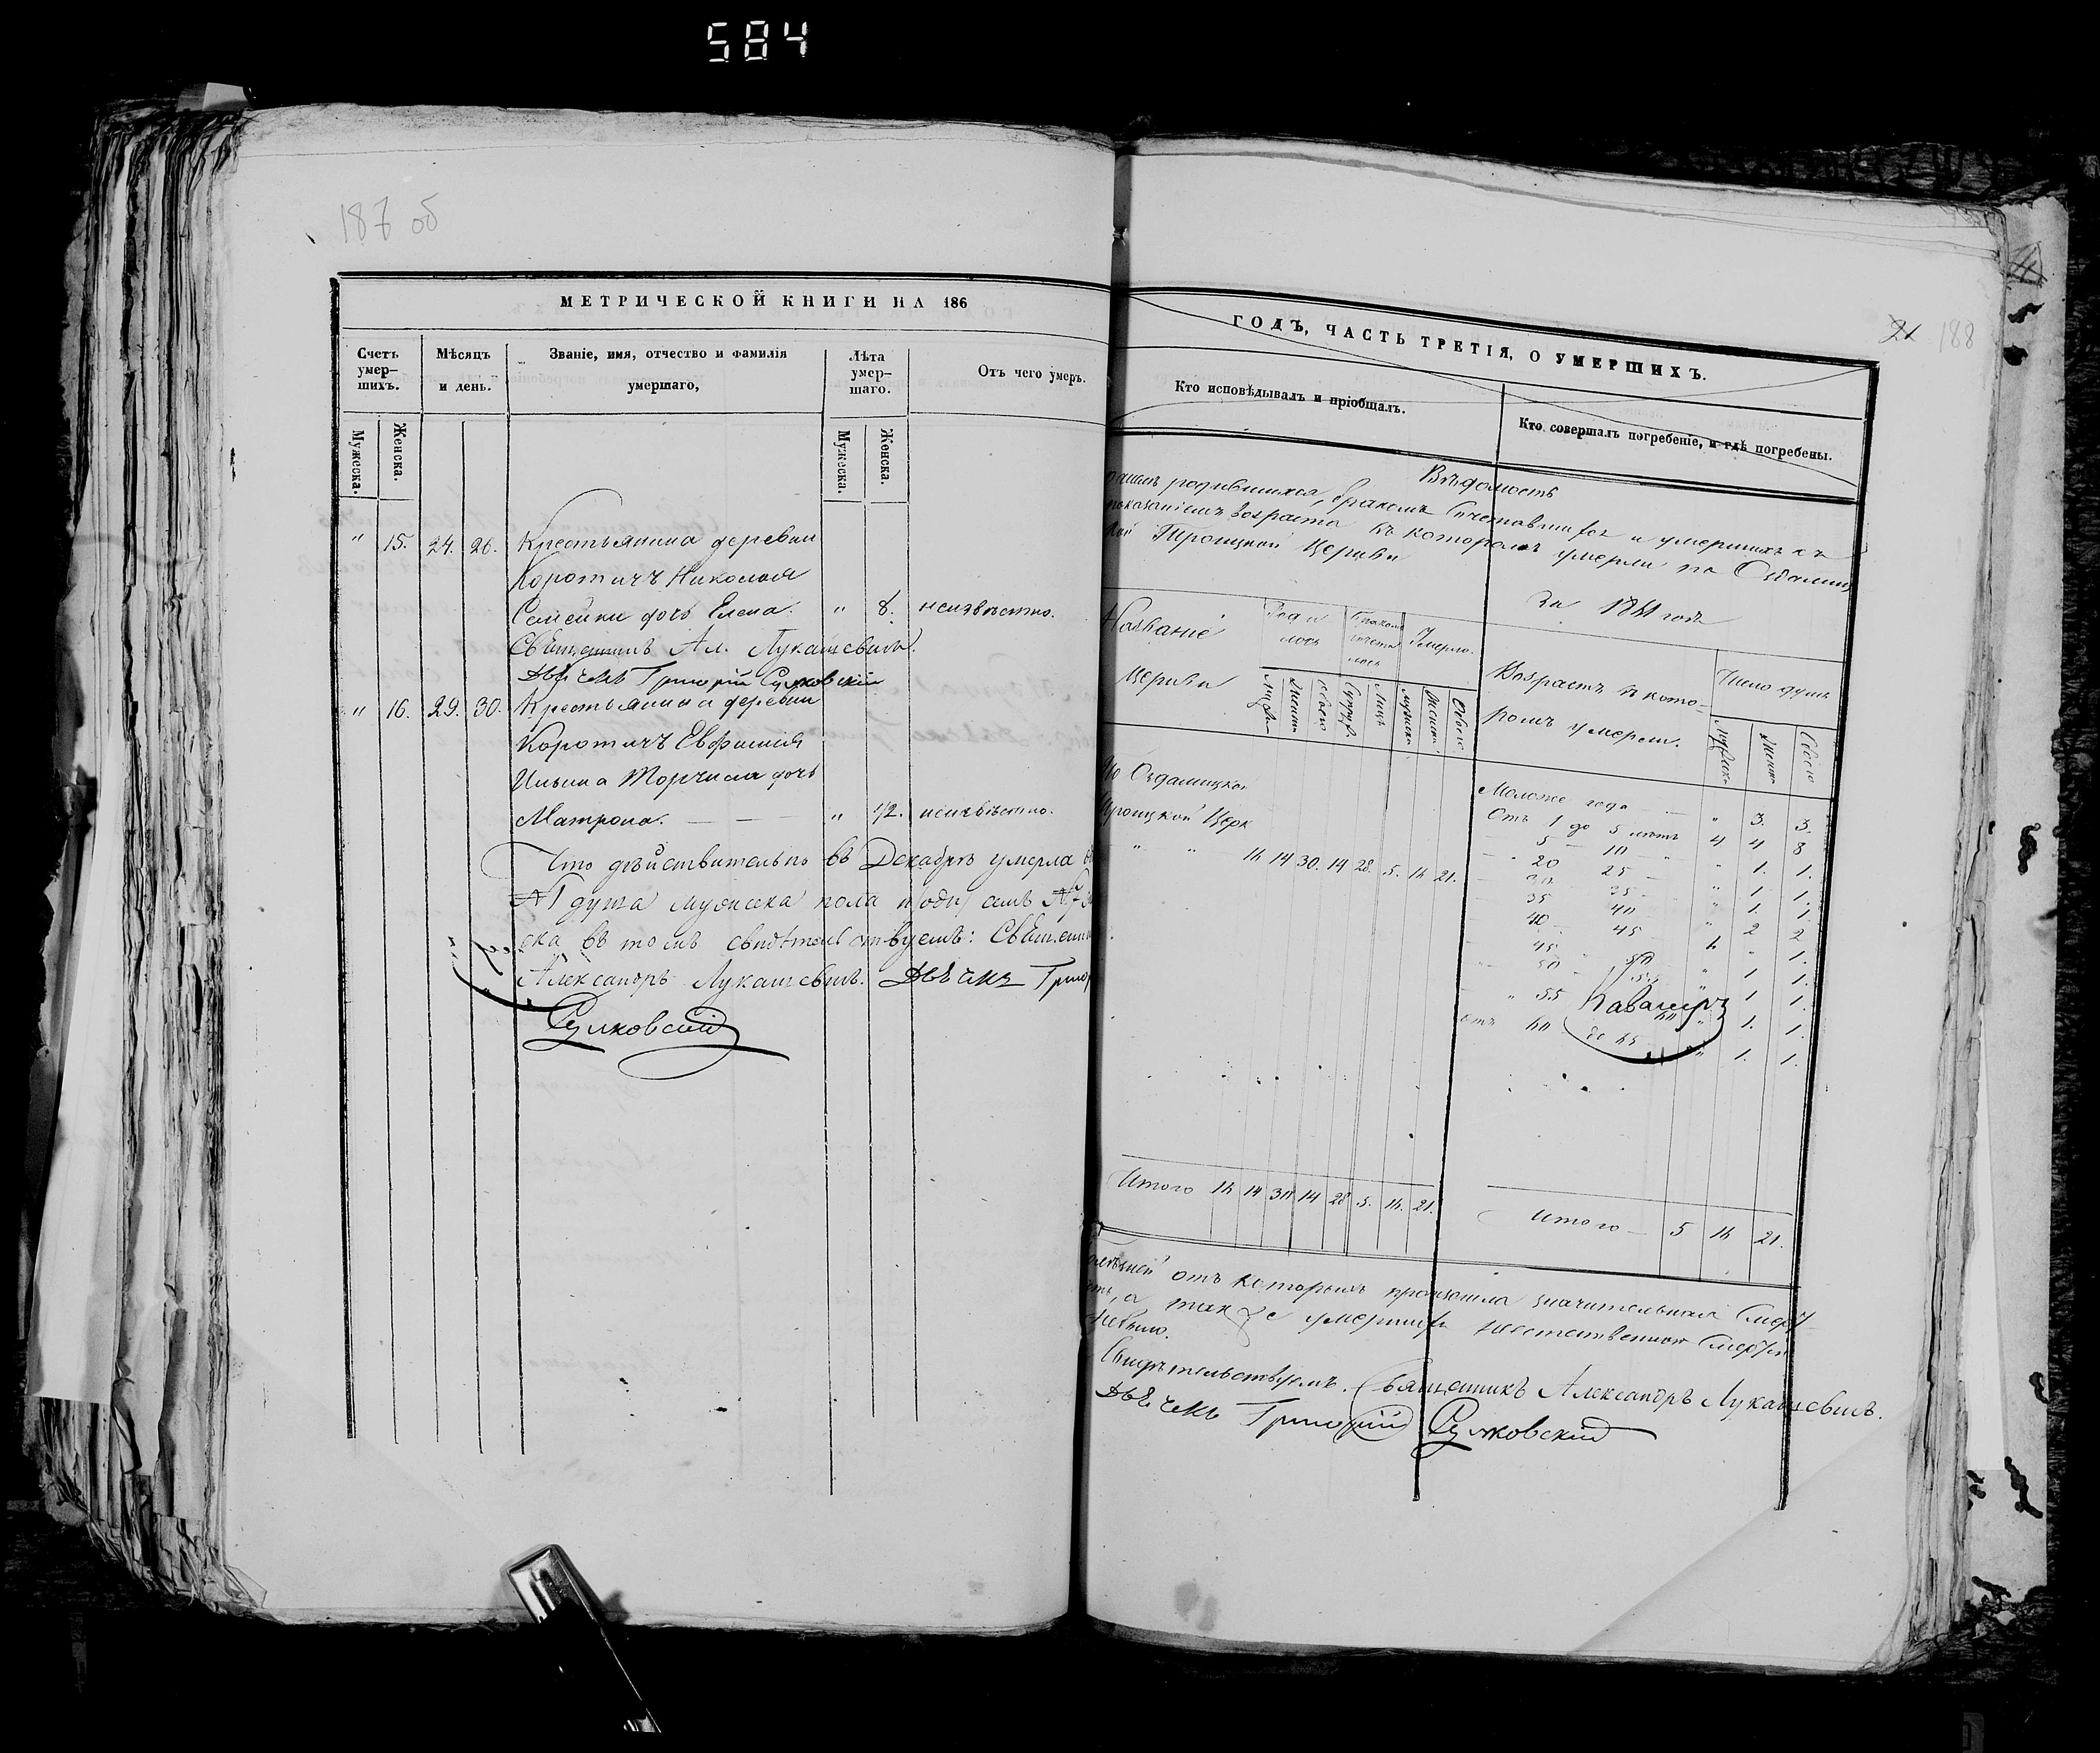 584
187 об
МЕТРИЧЕСКОЙ КНИГИ НА 186
Счетъ умер-шихъ.
Мѣсяцъ и день.
Званіе, имя, отчество и фамилія умершаго,
Лѣта умер-шаго.
Отъ чего умеръ.
Мужеска.
Женска.
Мужеска.
Женска.
" 15. 24. 26. Крестьянина деревни
Коротичъ Николая
Семейки дочь Елена. " 8. неизвѣстно.
Священникъ Ал. Лукашевичъ.
Дьячекъ Григорій Сулковскій
" 16. 29. 30. Крестьянина деревни
Коротичъ Евфимія
Ильина Торчила дочь
Матрона. " 1/2. неизвѣстно.
Что дѣйствительно въ Декабрѣ умерла
№ 1 душа мужеска пола и
ска въ томъ свидѣтельствуемъ: Священни
Александръ Лукашевичъ. Дьячекъ Григор
Сулковскій
21 188
ГОДЪ, ЧАСТЬ ТРЕТІЯ, О УМЕРШИХЪ.
Кто исповѣдывалъ и пріобщалъ.
Кто совершалъ погребеніе, и гдѣ погребены.
Вѣдомость
родившихся, бракомъ сочетавшихся и умершихъ съ
показаніемъ возраста въ которомъ умерли по Оздамиц
кой Троицкой Церкви
За 1861 годъ
Названіе Церкви
Родилось
Бракомъ сочеталось
Умерло.
Возрастъ въ кото-ромъ умерли.
Число душъ
По Оздамицкой
Троицкой Церк
" " 16 14 30. 14 28. 5. 16 21.
Моложе года " 3. 3.
Отъ 1 до 5 лѣтъ 4 4 8
5 10 " 1. 1.
20 25 " 1 1.
30 35 " 1. 1.
35 40 " 2 2
40 45
45 50 " 1 1.
50 55 " 1 1.
Кавалеръ
" 55 60 " 1. 1.
отъ 60 до 65 " 1. 1.
Итого 16 14 30 14 28 5. 16. 21.
Итого 5 16 21.
болѣзней отъ которыхъ произошла значительная смерт-
ность, а также умершихъ неестественною смертію
небыло.
Свидѣтельствуемъ. Священникъ Александръ Лукашевичъ.
Дьячекъ Григорій Сулковскій